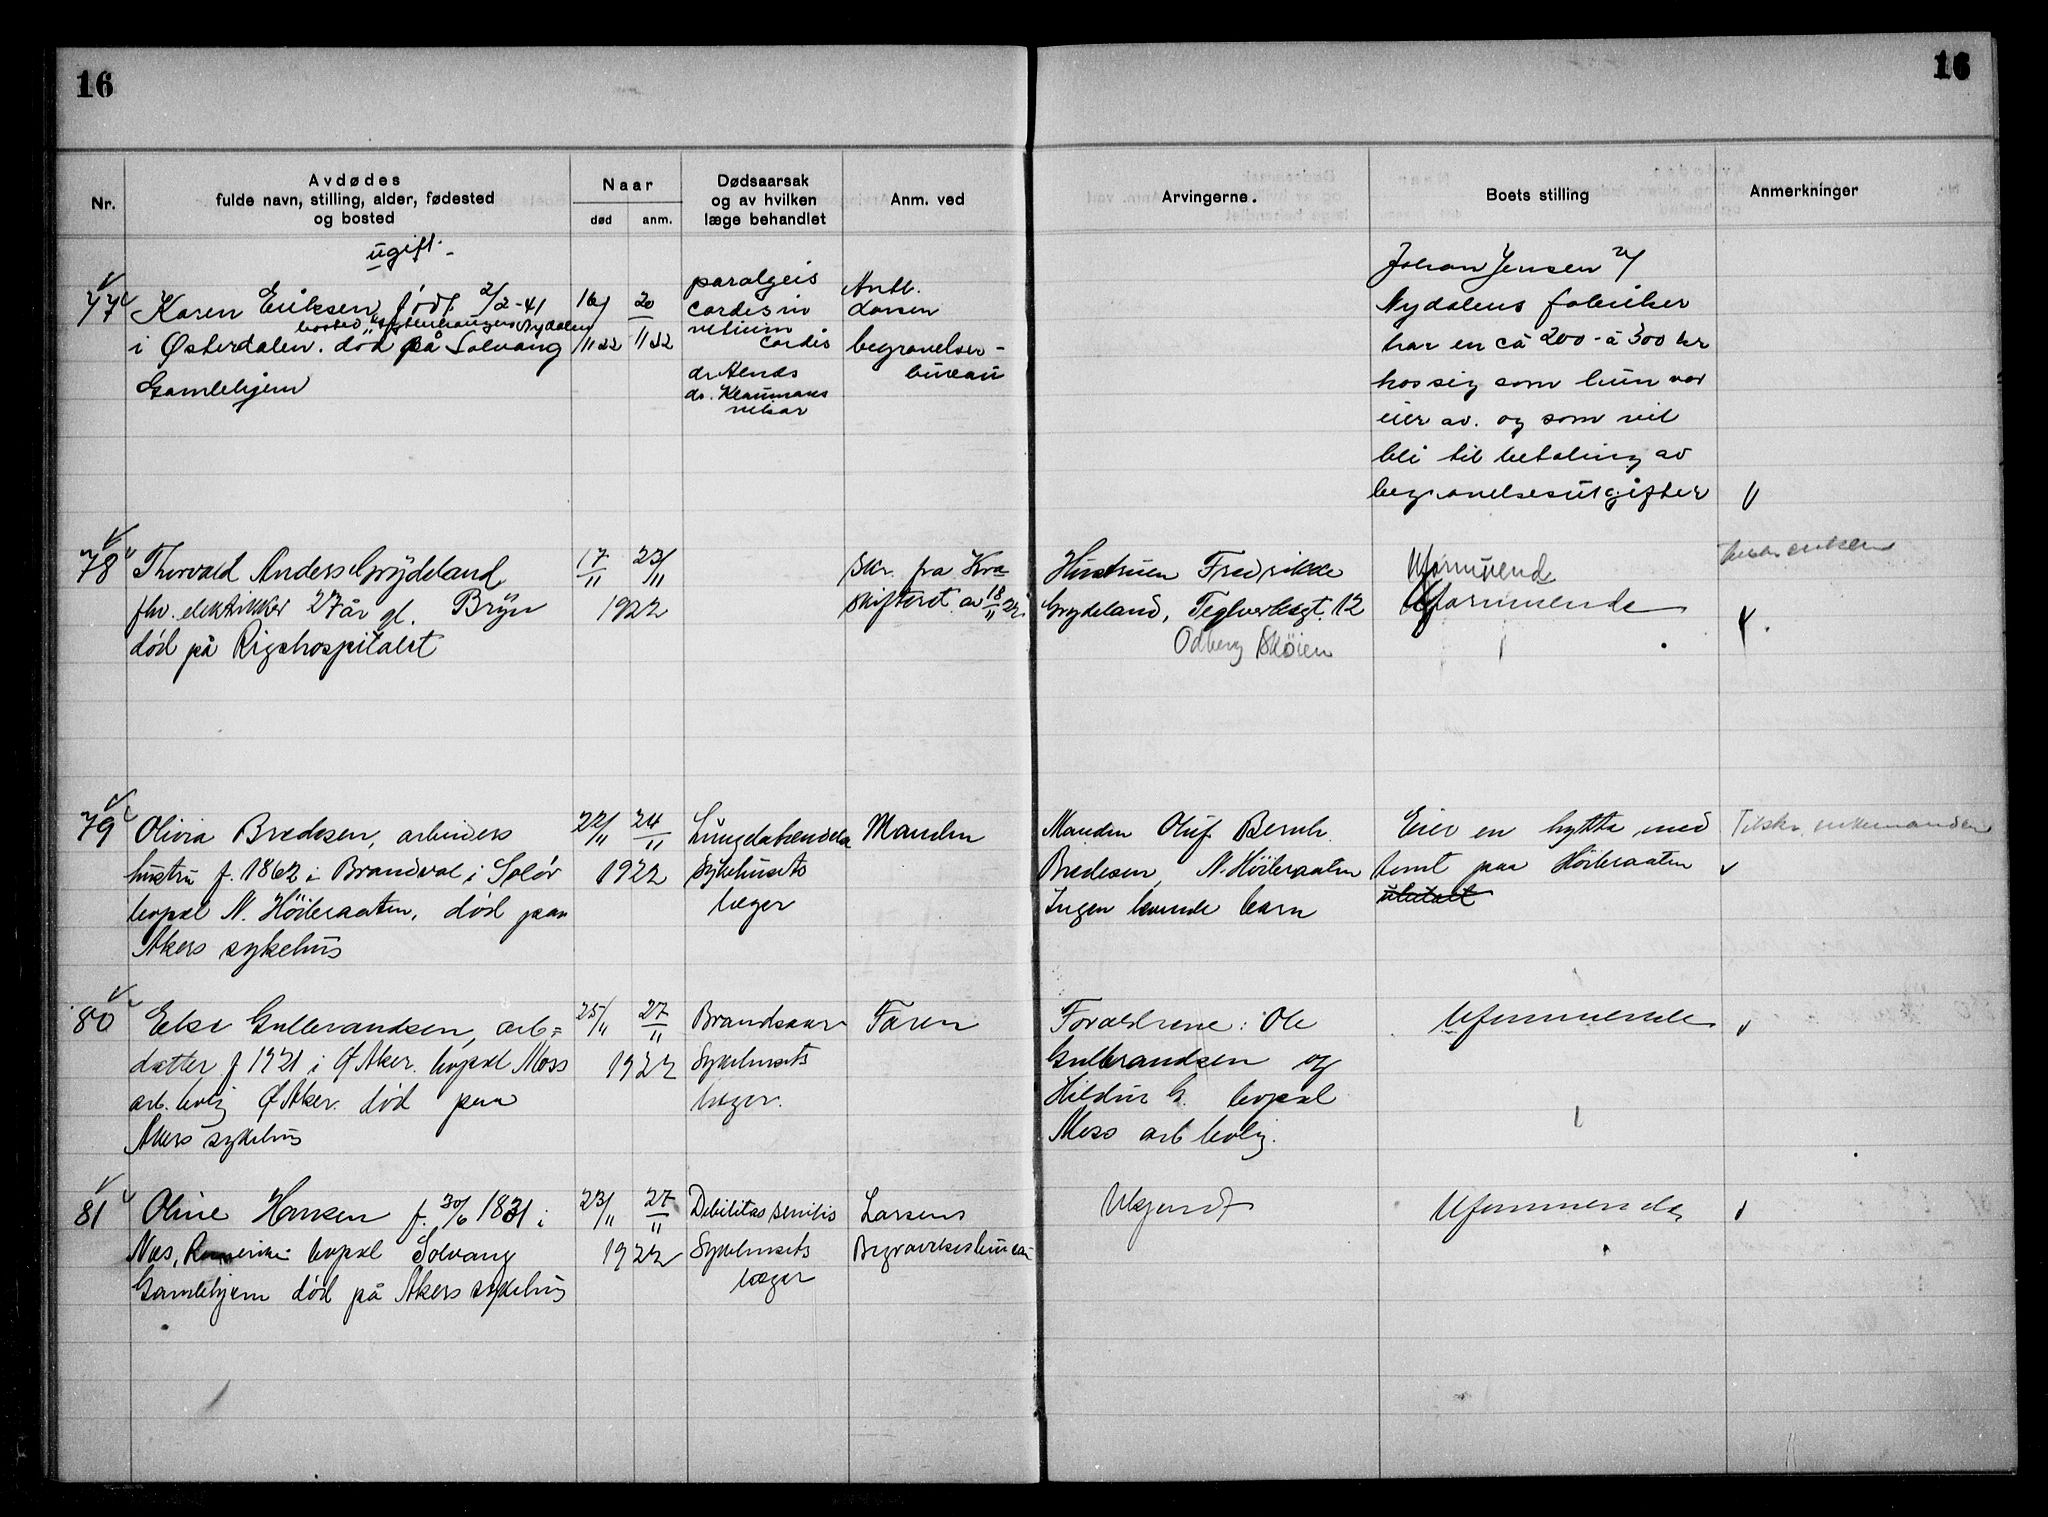 16
16
Nr.
Avdødes
fulde navn, stilling, alder, fødested
og bosted
Naar
død
anm.
Dødsaarsak
og av hvilken
læge behandlet
Anm. ved
Arvingerne.
Boets stilling
Anmerkninger
77
ugift.
Karen Eriksen, født 2/2-41
bosted Nydalen
i Østerdalen. død på Solvang
Gamlehjem
16/11 22
20/11 22
cordis
vitium
cordis
dr
dr.
begravelses-
bureau
Johan Jensen v/
Nydalens fabriker
har en ca 200 - à 300 kr
hos sig som hun var
eier av. og som vil
bli til betaling av
begravelsesutgifter
78
Thorvald Anders Grydeland
fhv. elektriker 27 år gl. Bryn
død på Rigshospitalet
17/11
23/11
1922
Skr. fra Kra
skifteret av 18/11 22.
Hustruen Fredrikke
Grydeland, Teglverksgt. 12
Odberg Skøien
Uformuende
Uformuende
79
Olivia Bredesen, arbeiders
hustru f. 1862 i Brandval i Solør
bopæl N. Høibraaten, død paa
Akers sykehus
22/11
24/11
1922
Lungebetændelse
Sykehusets
læger
Manden
Manden Oluf Bernh.
Bredesen, N. Høibraaten
Ingen levende barn
Eier en hytte med
tomt paa Høibraaten
ubetalt
Tilskr. enkemanden
80
Else Gulbrandsen, arb=
datter f 1921 i Ø Aker. bopæl Moss
arb. bolig Ø Aker. død paa
Akers sykehus
25/11
27/11
1922
Brandsaar
Sykehusets
læger.
Faren
Forældrene: Ole
Gulbrandsen og
Hildur G. bopæl
Moss arb bolig.
Uformuende
81
Oline Hansen f. 30/6 1831 i
Nes, Romerike bopæl Solvang
Gamlehjem død på Akers sykehus
23/11
27/11
1922
Debilitas senilis
Sykehusets
læger
Larsens
Begravelsesbureau
Ukjendt
Uformuende